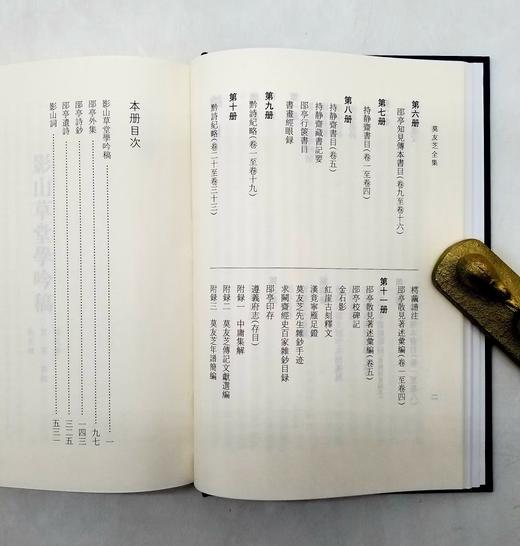 莫友芝全集
第六册
郘亭知見傳本書目(卷九至卷十六)
第七册
持静齋書目(卷一至卷四)
第八册
持静齋書目(卷五)
持静齋藏書記要
郘亭行篋書目
書畫經眼録
第九册
黔詩紀略(卷一至卷十九)
第十册
黔詩紀略(卷二十至卷三十三)
樗繭譜注
郘亭散見著述彙編(卷一至卷四)
第十一册
郘亭散見著述彙編(卷五)
郘亭校碑記
金石影
紅崖古刻釋文
漢竟寧雁足鐙
莫友芝先生雜鈔手迹
求闕齋經史百家雜鈔目録
郘亭印存
遵義府志(存目)
附録一 中庸集解
附録二 莫友芝傳記文獻選編
附録三 莫友芝年譜簡編
二
本册目次
影山草堂學吟稿 一
郘亭外集 九七
郘亭詩鈔 一四三
郘亭遺詩 三二五
影山詞 五三一
影山草堂學吟稿